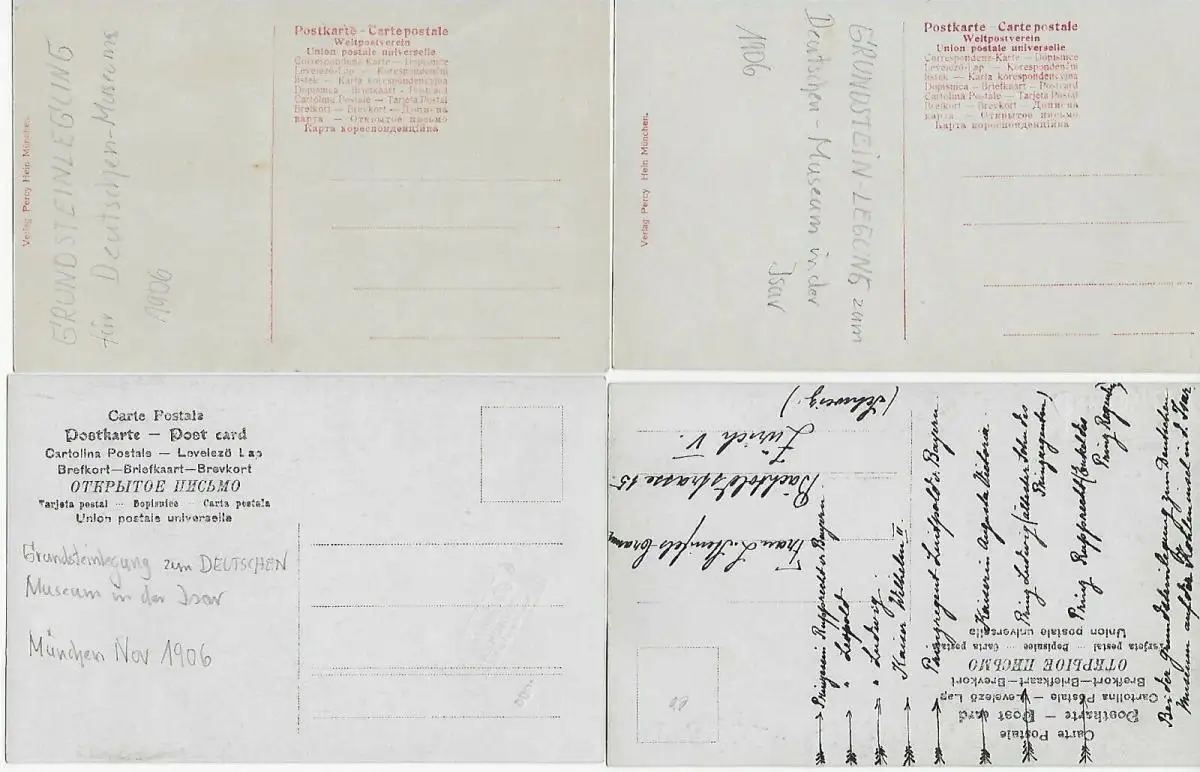 Postkarte – Carte postale
Weltpostverein
Union postale universelle
Correspondenz-Karte — Dopisnice
Levelező-Lap — Korespondenční
lístek — Karta korespondencyjna
Dopisnica — Briefkaart — Postcard
Cartolina Postale — Tarjeta Postal
Brefkort — Brevkort — Дописна
карта — Открытое письмо
Карта кореспонденційна
Verlag Percy Hein München.
GRUNDSTEINLEGUNG
für Deutschen-Museums
1906
Postkarte – Carte postale
Weltpostverein
Union postale universelle
Correspondenz-Karte — Dopisnice
Levelező-Lap — Korespondenční
lístek — Karta korespondencyjna
Dopisnica — Briefkaart — Postcard
Cartolina Postale — Tarjeta Postal
Brefkort — Brevkort — Дописна
карта — Открытое письмо
Карта кореспонденційна
Verlag Percy Hein München.
GRUNDSTEIN-LEGUNG zum
Deutschen-Museum in der
Isar
1906
Carte Postale
Postkarte — Post card
Cartolina Postale — Levelező Lap
Brefkort—Briefkaart—Brevkort
ОТКРЫТОЕ ПИСЬМО
Tarjeta postal ··· Dopisnice ··· Carta postala
Union postale universelle
Grundsteinlegung zum DEUTSCHEN
Museum in der Isar
München Nov 1906
Carte Postale
Postkarte — Post card
Cartolina Postale — Levelező Lap
Brefkort—Briefkaart—Brevkort
ОТКРЫТОЕ ПИСЬМО
Tarjeta postal ··· Dopisnice ··· Carta postala
Union postale universelle
Frau L.
Bächtoldstrasse 15.
Zürich V.
(Schweiz.)
Prinzessin Rupprecht v. Bayern
" Leopold
" Ludwig
Kaiser Wilhelm II
Prinzregent Luitpold v. Bayern
Kaiserin Auguste Victoria
Prinz Ludwig (ältester Sohn des
Prinzregenten)
Prinz Rupprecht (Enkel des
Prinz Regenten)
Bei der Grundsteinlegung zum Deutschen
Museum auf der Kohleninsel in d. Isar